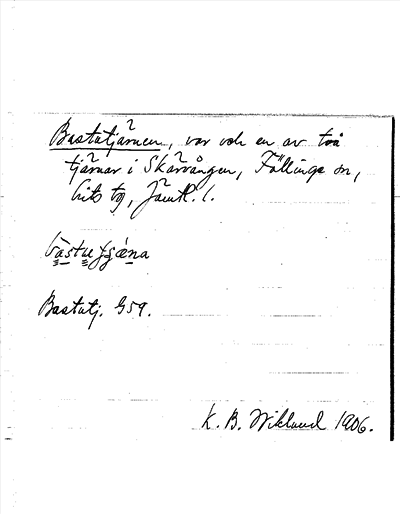 Bastutjärnen, var och en av två
tjärnar i Skärvången, Föllinge sn,
Lits tg, Jämtl. l.
Bastutj. G59.
K. B. Wiklund 1906.